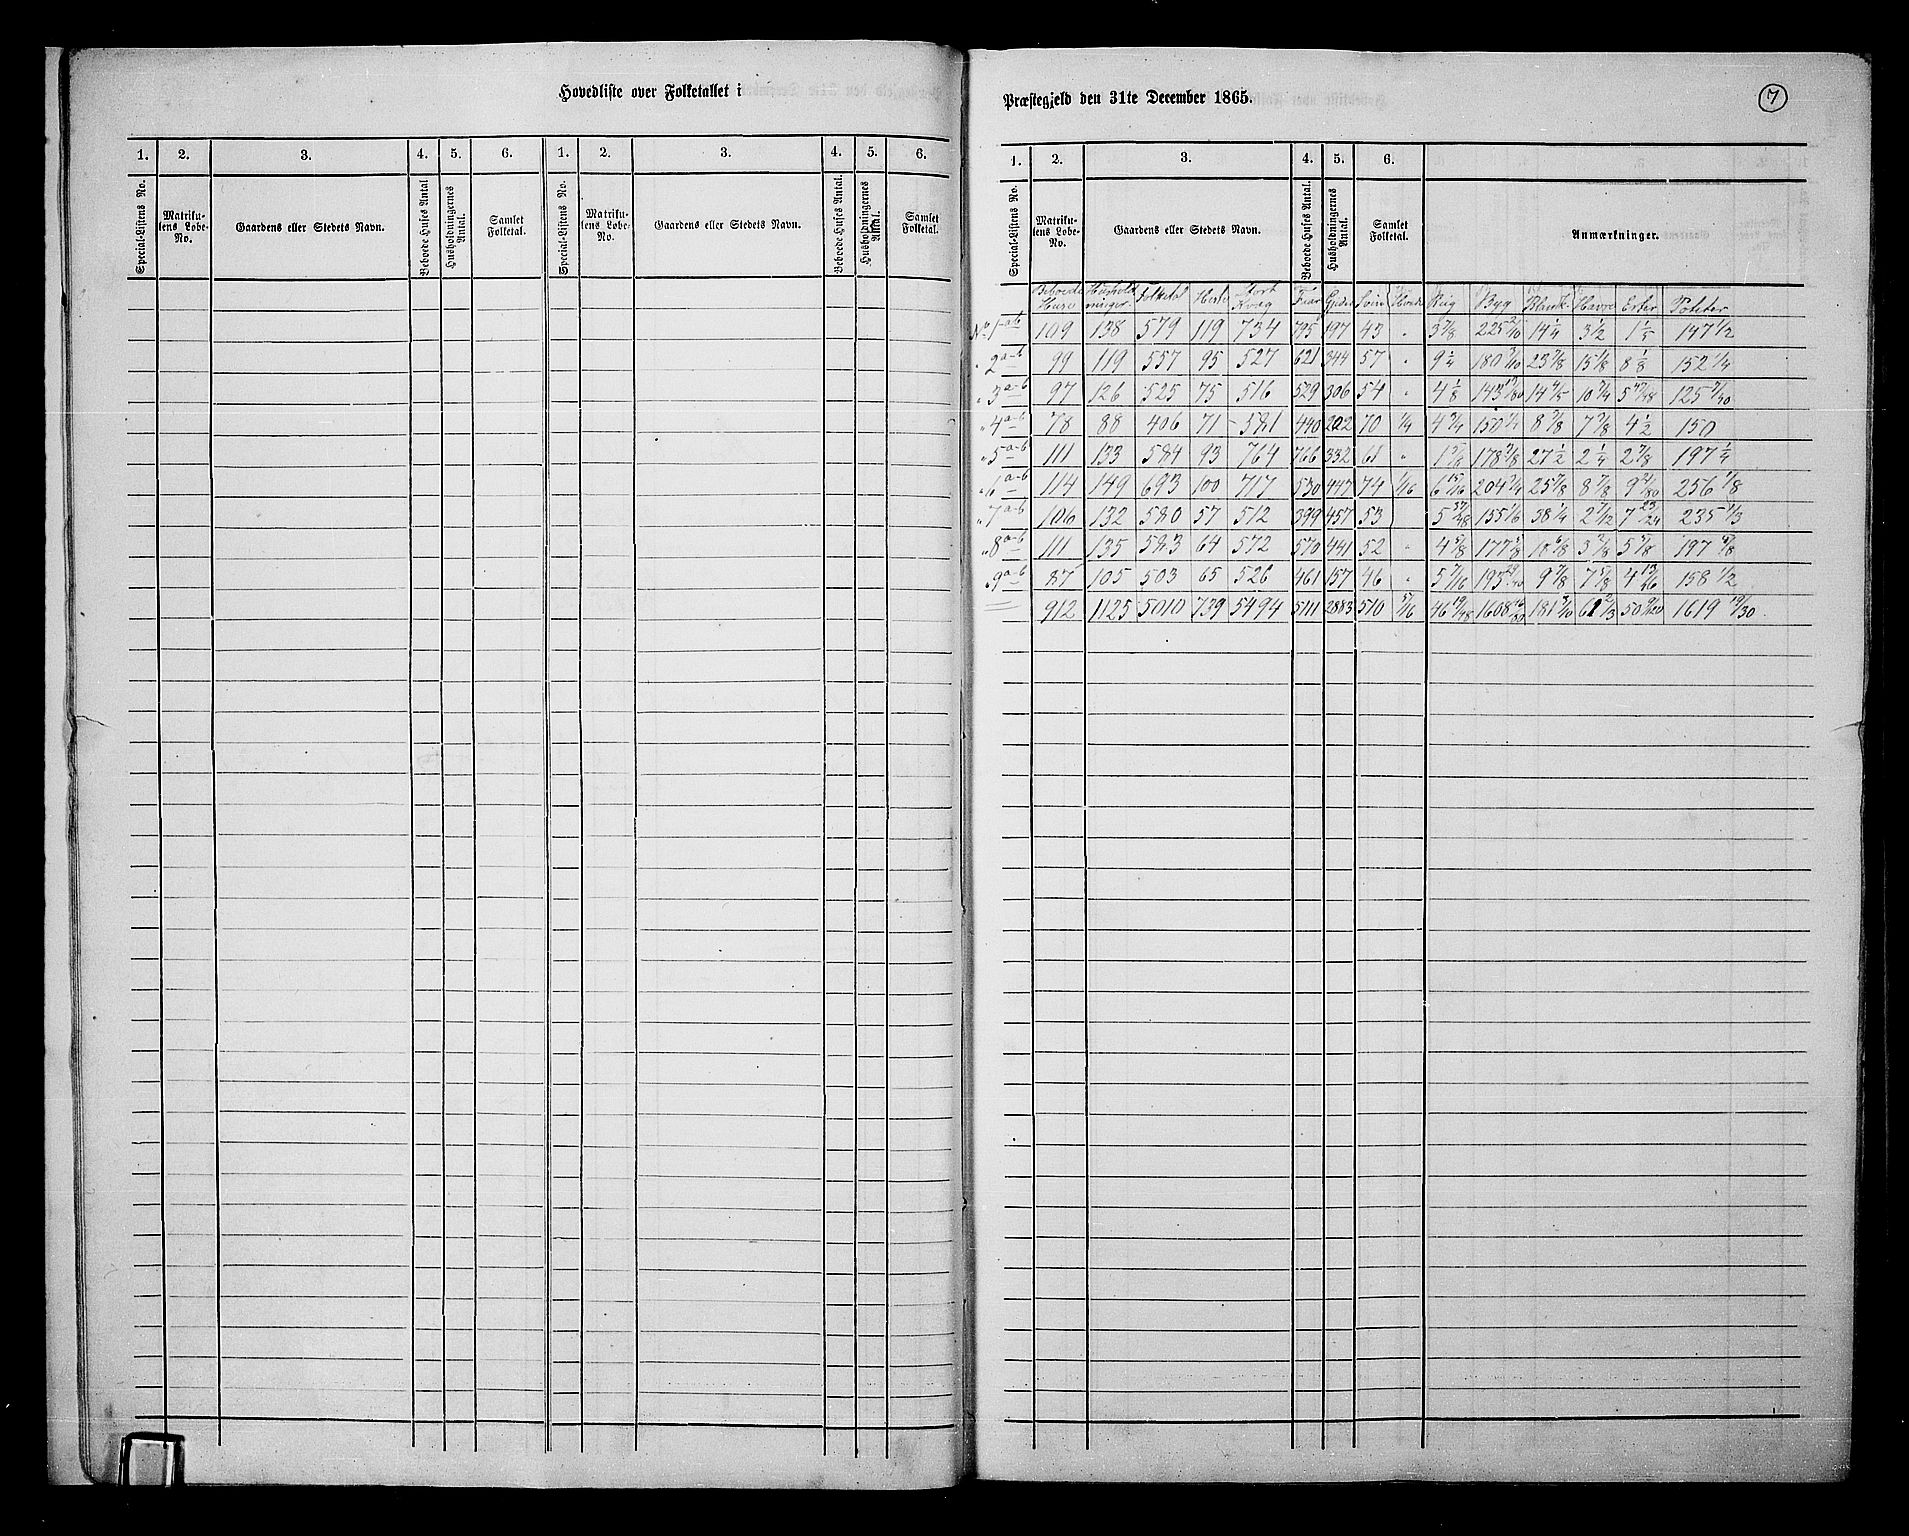 Hovedliste over Folketallet i
1. 2. 3. 4. 5. 6. 1. 2. 3. 4. 5. 6.
Special-Listens No. Matriku-lens Løbe-No. Gaardens eller Stedets Navn. Beboede Huses Antal Husholdningernes Antal. Samlet Folketal. Special-Listens No. Matriku-lens Løbe-No. Gaardens eller Stedets Navn. Beboede Huses Antal. Husholdningernes Antal. Samlet Folketal.
Præstegjeld den 31te December 1865.
7
1. 2. 3. 4. 5. 6.
Special-Listens No. Matriku-lens Løbe-No. Gaardens eller Stedets Navn. Beboede Huses Antal. Husholdningernes Antal. Samlet Folketal. Anmærkninger.
Beboede Huse Hushold-ninger Folketal Heste Stort Kvæg Faar Gjeder Svin Hvede Rug Byg Bland Havre Erter Poteter
No 1 a-b 109 138 579 119 734 795 197 43 " 3 7/8 14 1/4 3 1/2 1 1/5 147 1/2
" 2 a-b 99 119 557 95 527 621 344 57 " 9 1/4 180 3/10 23 7/8 15 1/8 8 1/8 152 1/4
" 3 a-b 97 126 525 75 516 529 306 54 " 4 1/8 14 4/5 10 3/4
" 4 a-b 78 88 406 71 581 440 202 70 1/4 4 3/4 150 1/4 8 7/8 7 7/8 4 1/2 150
" 5 a-b 111 133 584 93 764 766 332 61 " 178 3/8 27 1/2 2 1/4 2 7/8 197 1/4
" 6 a-b 114 149 693 100 717 530 447 74 1/16 6 15/16 204 3/4 25 7/8 8 7/8 256 1/8
" 7 a-b 106 132 580 57 512 399 457 53 155 1/6 38 1/4 2 7/12 7 23/24 235 1/3
" 8 a-b 111 135 583 64 572 570 441 52 " 4 5/8 177 5/8 18 6/8 5 7/8
" 9 a-b 87 105 503 65 526 461 157 46 " 5 7/16 9 7/8 7 5/8 4 13/16 158 1/2
912 1125 5010 739 5494 5111 2883 510 5/16 46 19/48 181 3/10 61 2/3 50 9/20 1619 19/30